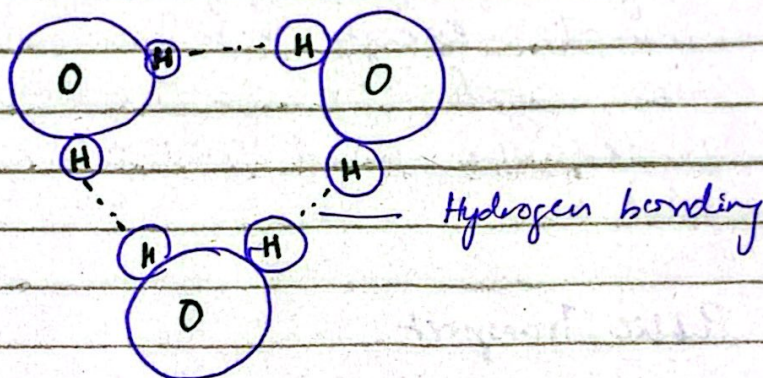 H H
O O
H H
Hydrogen bonding
H H
O